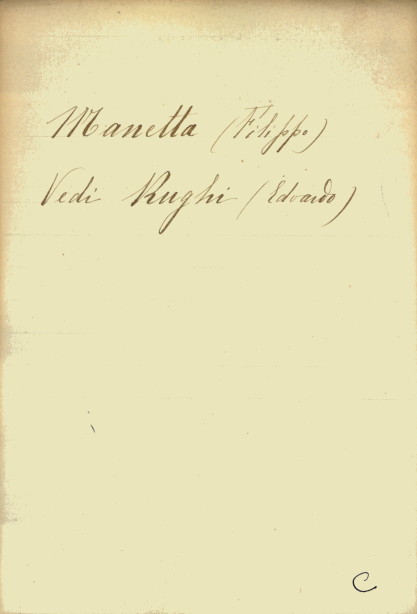 Manetta (Filippo)
Vedi Rughi (Edoardo)
C